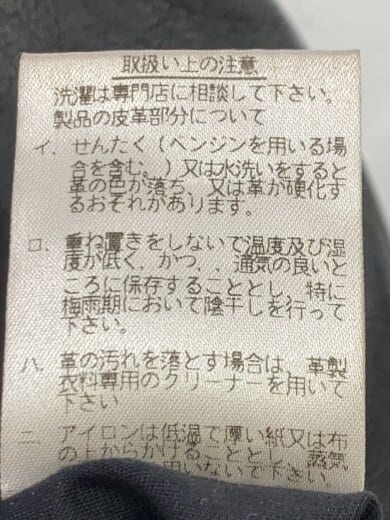 取扱い上の注意
洗濯は専門店に相談して下さい。
製品の皮革部分について
イ. せんたく(ベンジンを用いる場
合を含む。)又は水洗いをすると
革の色が落ち、又は革が硬化す
るおそれがあります。
ロ. 重ね置きをしないで温度及び湿
度が低く、かつ、、通気の良いと
ころに保存することとし、特に
梅雨期において陰干しを行って
下さい。
ハ. 革の汚れを落とす場合は、革製
衣料専用のクリーナーを用いて
下さい
ニ. アイロンは低温で厚い紙又は布
の上からかけることとし、蒸気
用いないで下さい。